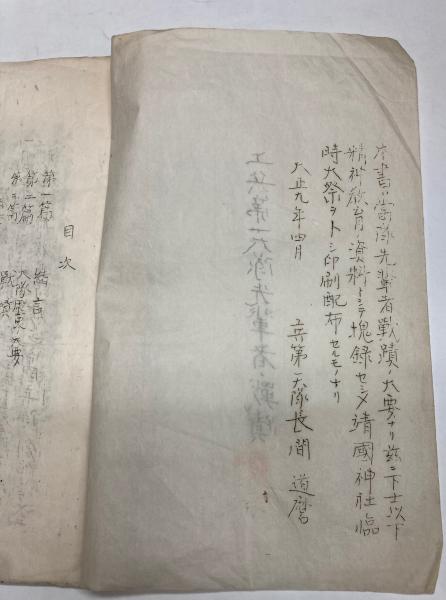 本書ハ當隊先輩者戰蹟ノ大要ナリ茲ニ下士以下
精神教育ノ資料トシテ塊録セシメ靖國神社臨
時大祭ヲトシ印刷配布セルモノナリ
大正九年四月
兵第一大隊長間 道麿
工兵第一大隊先輩者ノ戰蹟
目次
第一篇 緒言
第二篇 大隊歴史ノ大要
第三篇 戰蹟